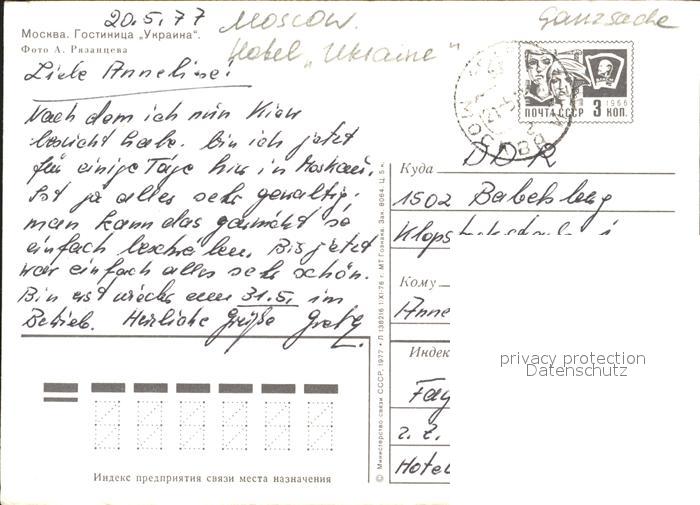 20.5.77
Moscow.
Hotel „Ukraine“
Ganzsache
Москва. Гостиница „Украина“.
Фото А. Рязанцева
Liebe Anneliese!
Nach dem ich nun Kiew
besucht habe. bin ich jetzt
für einige Tage hier in Moskau.
Ist ja alles sehr gewaltig.
man kann das gar nicht so
einfach beschreiben. Bis jetzt
war einfach alles sehr schön.
Bin erst wieder am 31.5. im
Betrieb. Herzliche Grüße
ПОЧТА СССР 3 КОП.
1966
Куда
DDR
1502 Babelsberg
Кому
Anne
Индек
z. Z.
Hotel
privacy protection
Datenschutz
Индекс предприятия связи места назначения
© Министерство связи СССР, 1977 • Л 138216 1/XI-76 г. МТ Гознака. Зак. 8064. Ц. 5 к.